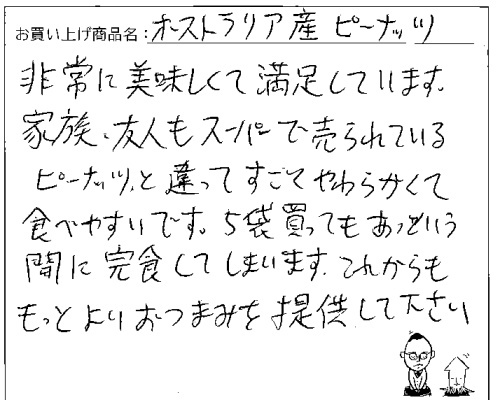 お買い上げ商品名：オーストラリア産 ピーナッツ
非常に美味しくて満足しています。
家族、友人もスーパーで売られている
ピーナッツと違ってすごくやわらかくて
食べやすいです。5袋買ってもあっという
間に完食してしまいます。これからも
もっとよりおつまみを提供して下さい